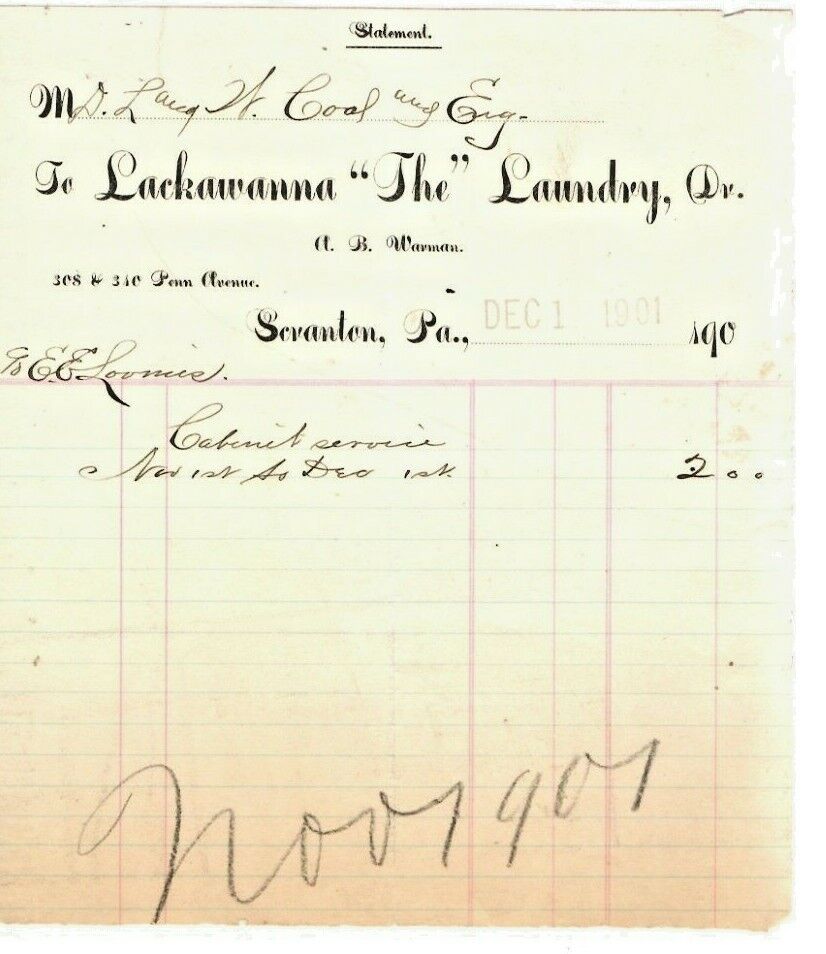 Statement.
M D. Lang W. Coal and Eng.
To Lackawanna "The" Laundry, Dr.
A. B. Warman.
308 & 310 Penn Avenue.
Scranton, Pa., DEC 1 1901 190
E. E. Loomis.
Cabinet service
Nov 1st to Dec 1st 2 00
Nov 1901